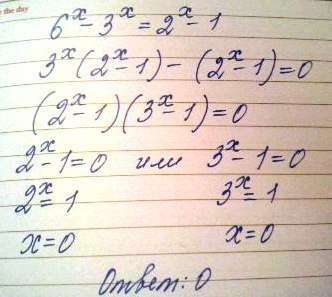 the day
6^x - 3^x = 2^x - 1
3^x (2^x - 1) - (2^x - 1) = 0
(2^x - 1)(3^x - 1) = 0
2^x - 1 = 0 или 3^x - 1 = 0
2^x = 1 3^x = 1
x = 0 x = 0
Ответ: 0